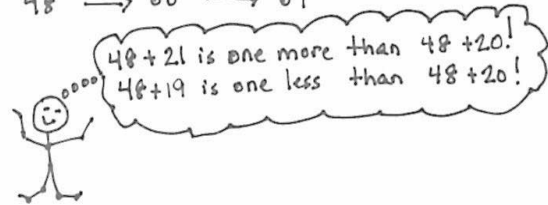 48+21 is one more than 48+20!
48+19 is one less than 48+20!